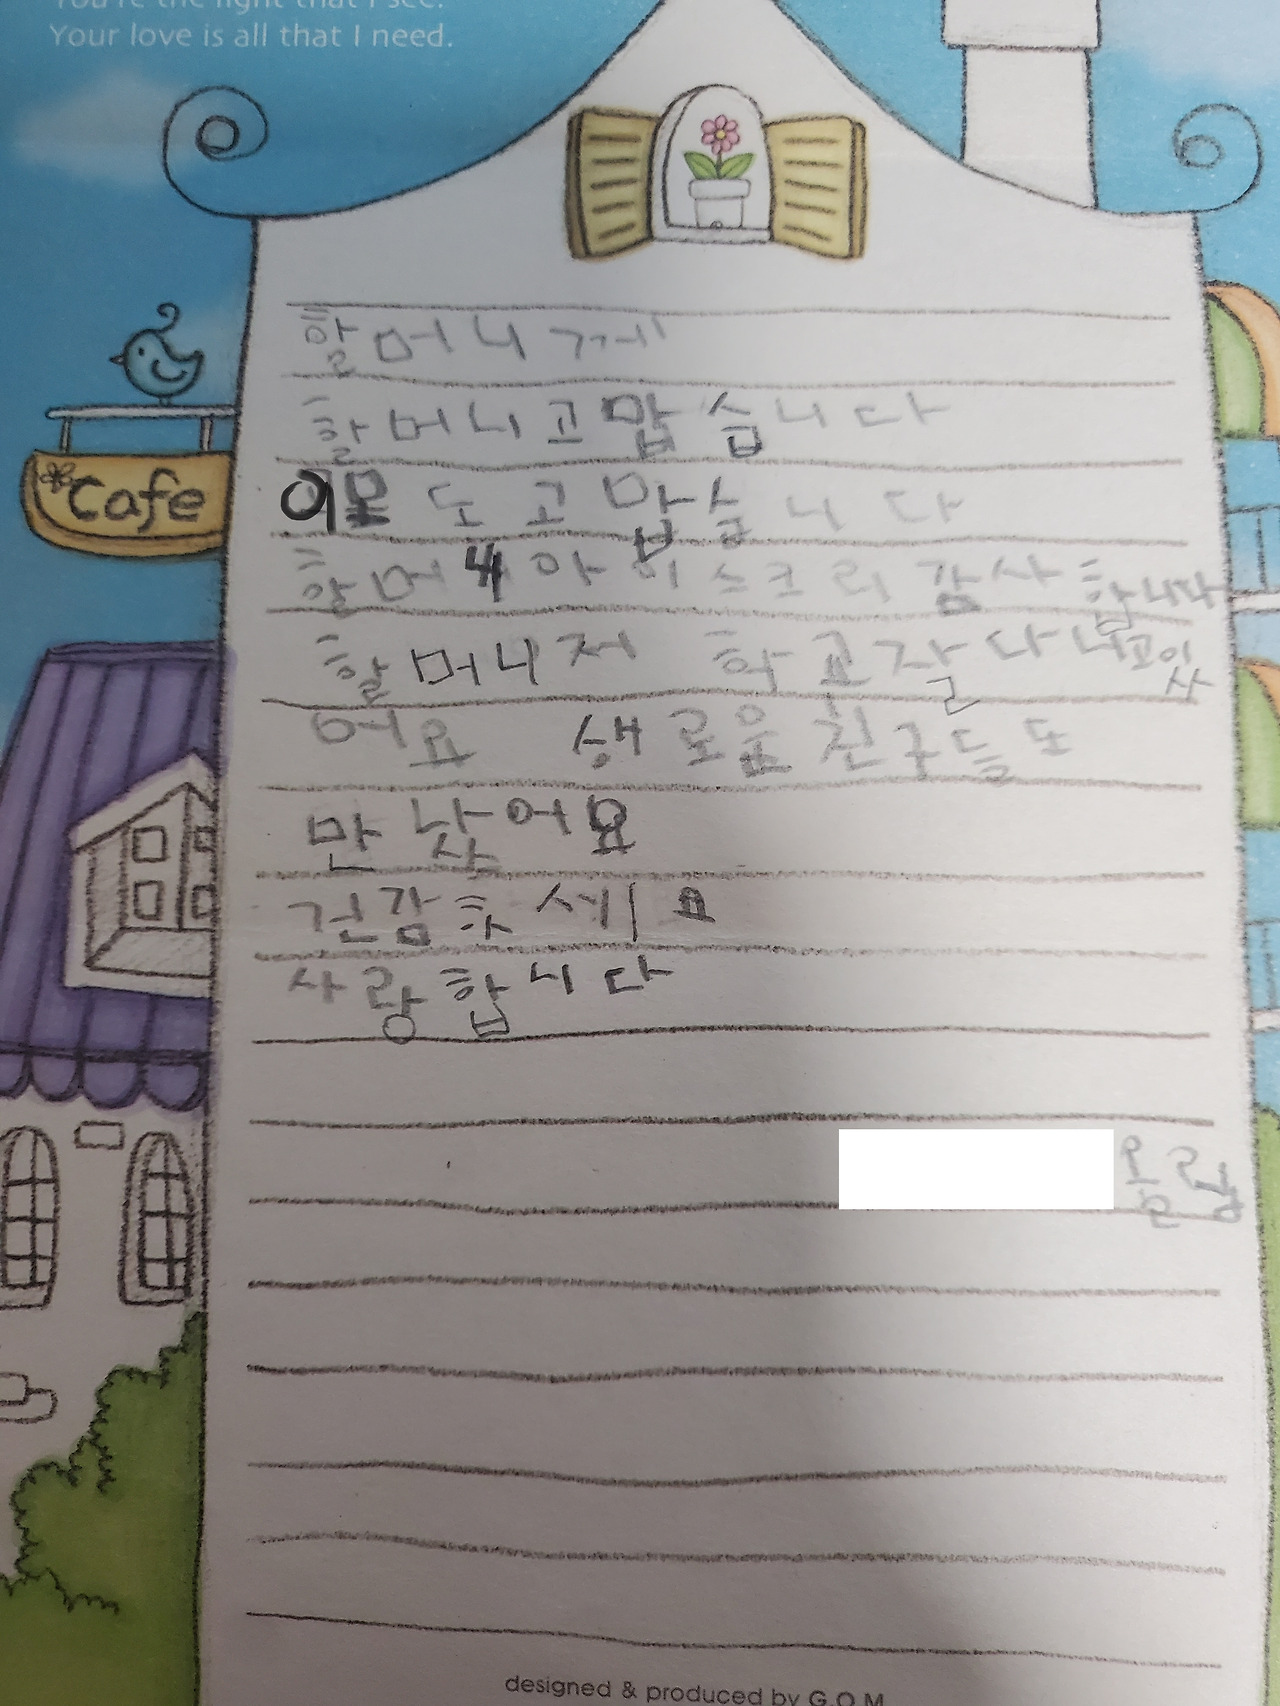 You're the light that I see.
Your love is all that I need.
Cafe
할머니께
할머니고맙습니다
이모도고맙습니다
할머니아이스크리감사합니다
할머니저 학교잘다니고이
ㅆ
어요 새로운친구들도
만났어요
건감하세요
사랑합니다
올림
designed & produced by G.O.M